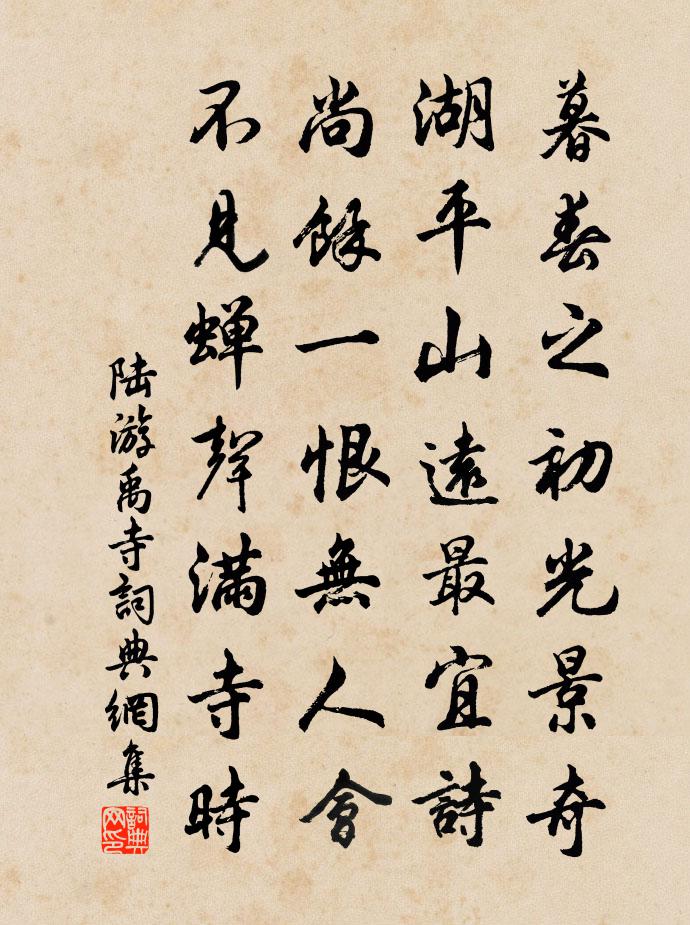 暮春之初光景奇
湖平山遠最宜詩
尚餘一恨無人會
不見蟬聲滿寺時
陆游禹寺詞典網集
詞典网印